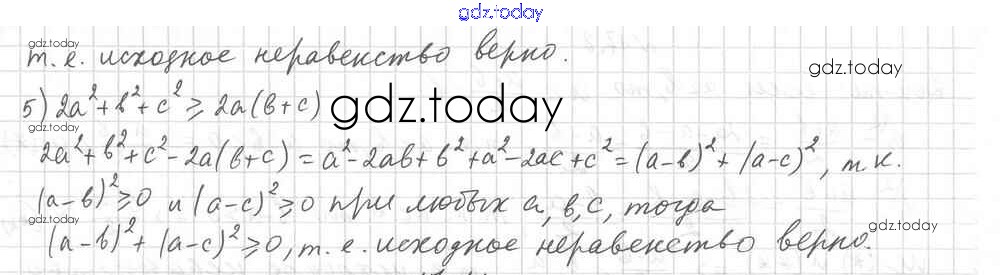 gdz.today
gdz.today
т.е. исходное неравенство верно.
gdz.today
5) 2a²+b²+c² ≥ 2a(b+c) gdz.today
gdz.today
2a²+b²+c²-2a(b+c) = a²-2ab+b²+a²-2ac+c² = (a-b)²+(a-c)², т.к.
(a-b)²≥0 и (a-c)²≥0 при любых a, b, c, тогда
gdz.today
gdz.today
(a-b)²+(a-c)²≥0, т.е. исходное неравенство верно.